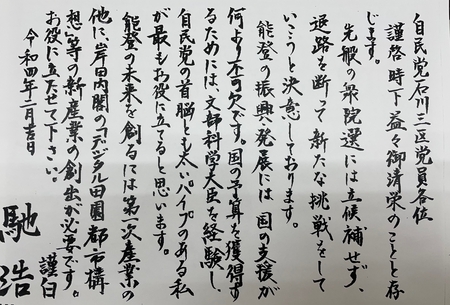 自民党石川三区党員各位
謹啓 時下益々御清栄のことと存
じます。
先般の衆院選には立候補せず、
退路を断って新たな挑戦をして
いこうと決意しております。
能登の振興・発展には、国の支援が
何より不可欠です。国の予算を獲得す
るためには、文部科学大臣を経験し、
自民党の首脳とも太いパイプのある私
が最もお役に立てると思います。
能登の未来を創るには第一次産業の
他に、岸田内閣の「デジタル田園都市構
想」等の新産業の創出が必要です。
お役に立たせて下さい。
謹白
令和四年二月吉日
馳浩